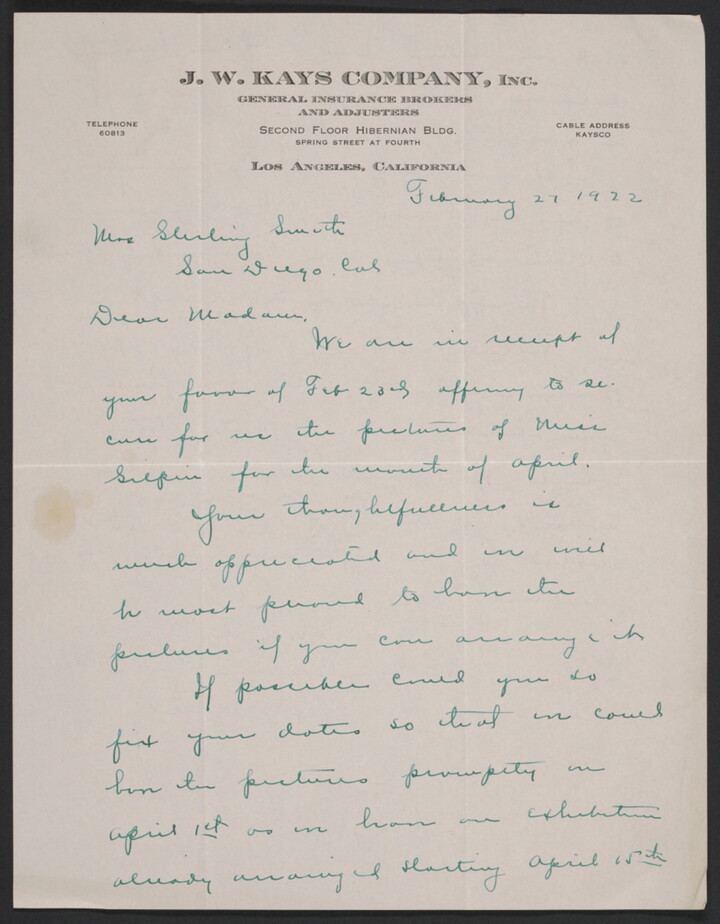 J. W. KAYS COMPANY, INC.
GENERAL INSURANCE BROKERS
AND ADJUSTERS
TELEPHONE
60813
SECOND FLOOR HIBERNIAN BLDG.
SPRING STREET AT FOURTH
CABLE ADDRESS
KAYSCO
LOS ANGELES, CALIFORNIA
February 27 1922
Mrs Sterling Smith
San Diego. Cal
Dear Madam,
We are in receipt of
your favor of Feb 23rd offering to se-
cure for us the pictures of Miss
Gilpin for the month of April.
Your thoughtfullness is
much appreciated and we will
be most proud to have the
pictures if you can arrange it
If possible could you so
fix your dates so that we could
have the pictures promptly on
April 1st as we have an exhibition
already arranged starting April 15th